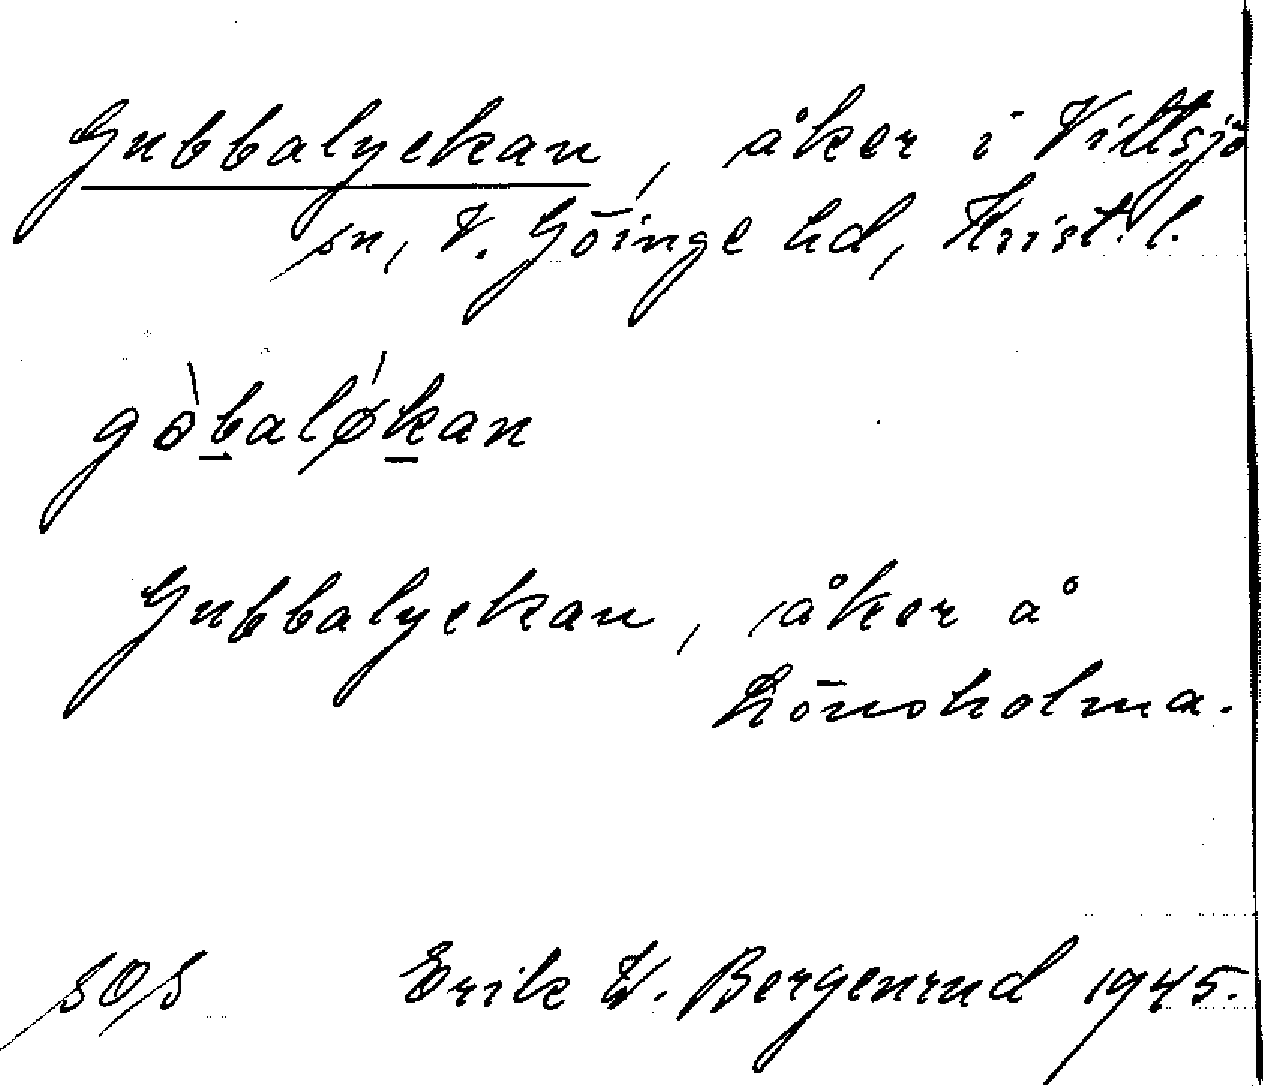 Gubbalyckan, åker i Vittsjö
sn, V. Göinge hd, Krist. l.
gòbaløkan
Gubbalyckan, åker å
Lönsholma.
SOS Erik W. Bergenrud 1945.